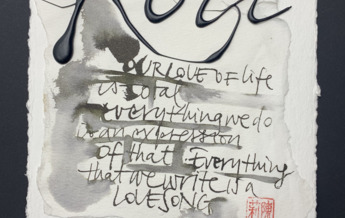 OUR LOVE OF life
is total
everything we do
is an expression
of that. Everything
that we write is a
LOVE SONG